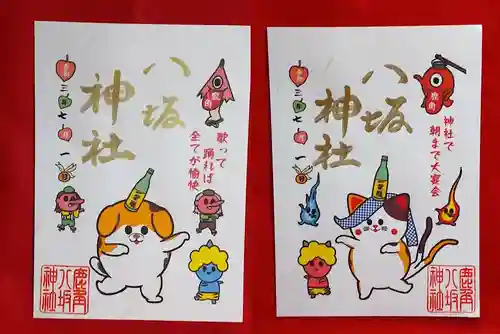 八坂
神社
三年七月一日
歌って
踊れば
全てが愉快
鹿角
八坂
神社
八坂
神社
三年七月一日
神社で
朝まで大宴会
鹿角
八坂
神社